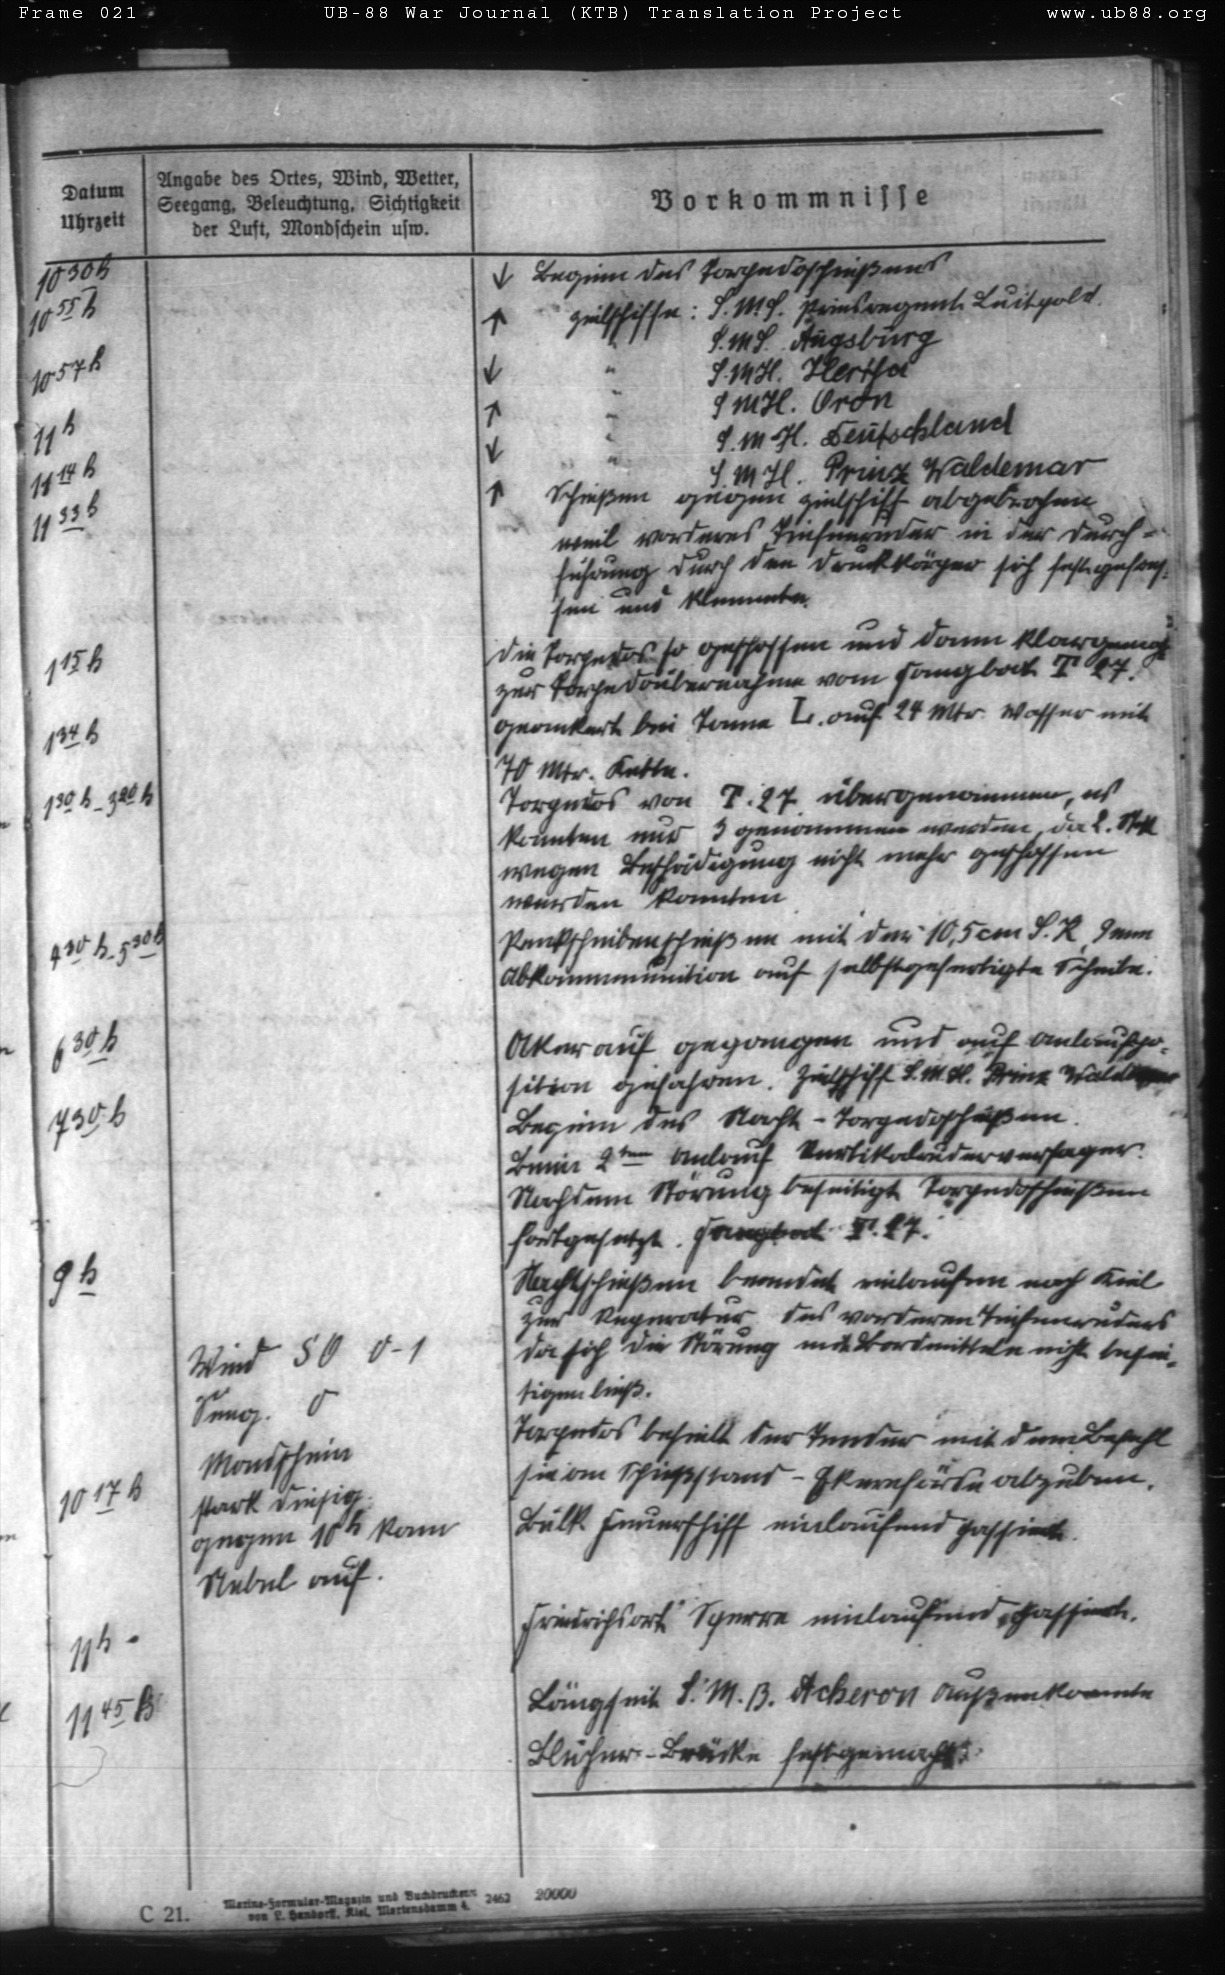 Frame 021 UB-88 War Journal (KTB) Translation Project www.ub88.org
Datum
Uhrzeit
Angabe des Ortes, Wind, Wetter,
Seegang, Beleuchtung, Sichtigkeit
der Luft, Mondschein usw.
Vorkommnisse
10 30 h ↓ Beginn des Torpedoschießens
10 55 h ↑ Zielschiffe: S.M.S. Prinzregent Luitpold.
" S.M.S. Augsburg
10 57 h ↓ " S.M.H. Hertha
↑ " S.M.H. Oron
11 h ↓ " S.M.H. Deutschland
11 14 h " S.M.H. Prinz Waldemar
11 33 h ↑ Schießen gegen Zielschiff abgebrochen
weil vorderes Tiefenruder in der Durch-
führung durch den Druckkörper sich festgefres-
sen und klemmte.
1 15 h Die Torpedos so geschossen und dann klargemacht
zur Torpedoübernahme vom Fangboot T 27.
1 34 h geankert bei Tonne L. auf 24 Mtr. Wasser mit
70 Mtr. Kette.
1 30 h - 3 20 h Torpedos von T. 27 übergenommen, es
konnten nur 3 genommen werden, da 2.
wegen Beschädigung nicht mehr geschossen
werden konnten
4 30 h - 5 30 h scheibenschießen mit der 10,5 cm S.K.
Abkommmunition auf selbstgefertigte Scheibe.
6 30 h Aker auf gegangen und auf Anlaufspo-
sition gefahren. Zielschiff S.M.H. Prinz Waldemar
7 30 h Beginn des Nacht-Torpedoschießen.
Beim 2ten Anlauf Vertikalruderversager.
Nachdem Störung beseitigt Torpedoschießen
fortgesetzt. Fangboot T. 27.
9 h Nachtschießen beendet einlaufen nach Kiel
zur Reperatur des vorderen Tiefenruders
da sich die Störung mit Bordmitteln nicht besei-
tigen ließ.
Wind SO 0-1
Seeg. 0
Mondschein
stark diesig.
gegen 10 h kam
Nebel auf.
Torpedos behielt der Tender mit dem Befehl
sie am Schießstand - Ekernförde abzugeben.
10 17 h Bülk Feuerschiff einlaufend passiert.
11 h Friedrichsort Sperre einlaufend passiert.
11 45 h Längseit S.M.B. Acheron Außenkante
Blücher-Brücke festgemacht.
C 21.
Marine-Formular-Magazin und Buchdruckerei
von L. Handorff, Kiel, Martensdamm 4.
2462 20000